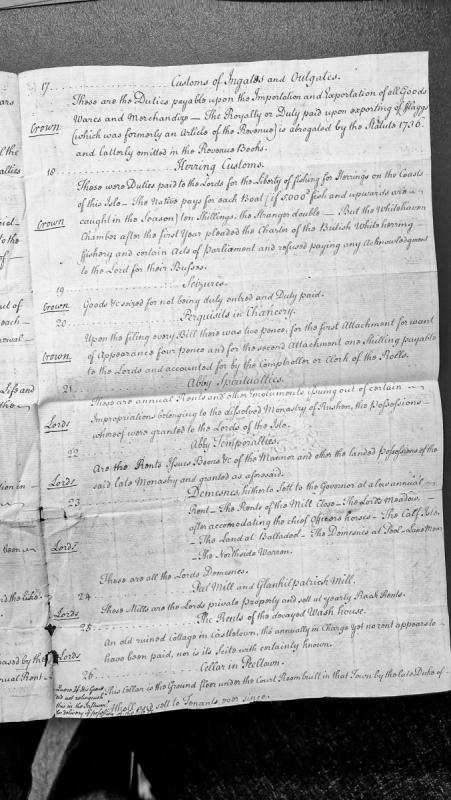 17 Customs of Ingates and Outgates.
These are the Duties payable upon the Importation and Exportation of all Goods
Wares and Merchandize — The Royalty or Duty paid upon exporting of
Crown
(which was formerly an Article of the Revenue) is abrogated by the Statute 1736.
and latterly omitted in the Revenue Books.
18 Herring Customs.
These were Duties paid to the Lords for the Liberty of fishing for Herrings on the Coasts
of this Isle — The Native pays for each Boat (if 5.000 fish and upwards are
Crown
caught in the Season) ten Shillings, the stranger double — But the Whitehaven
Chamber after the first Year pleaded the Charter of the British White herring
ffishery and certain Acts of Parliament and refused paying any Acknowledgment
to the Lord for their Busses.
19 Seizures.
Crown Goods &c seized for not being duly entred and Duty paid.
20 Perquisits in Chancery.
Upon the filing every Bill there was two pence, for the first Attachment for want
Crown of Appearance four pence and for the second Attachment one Shilling payable
to the Lords and accounted for by the Comptroller or Clerk of the Rolls.
21 Abby Spiritualties.
These are annual Rents and other Emoluments issuing out of certain
Lords Impropriations belonging to the dissolved Monastry of Rushen, the Possessions
whereof were granted to the Lords of the Isle.
22 Abby Temporalties.
Are the Rents Issues Boons &c of the Mannor and other the landed Possessions of the
Lords said late Monastry and granted as aforesaid.
23 Demesnes, hitherto sett to the Governor at a low annual
Rent — The Rents of the Mill Close — The Lords Meadow,
after accomodating the chief Officers horses — The Calf Isle.
Lords — The Land at Balladod — The Demesnes at Peel —
— The Northside Warren.
These are all the Lords Demesnes.
24 Peel Mill and Glanhilpatrick Mill.
Lords These Mills are the Lords private Property and sett at yearly Rack Rents.
25 The Rents of the decayed Wash house.
An old ruined Cottage in Castletown, tho annually in Charge yet no rent appears to
Lords have been paid, nor is its Scite with certainty known.
26 Cellar in Peeltown.
This Cellar is the Ground floor under the Court Room built in that Town by the late Duke of
Atholl and sett to Tenants ever since.